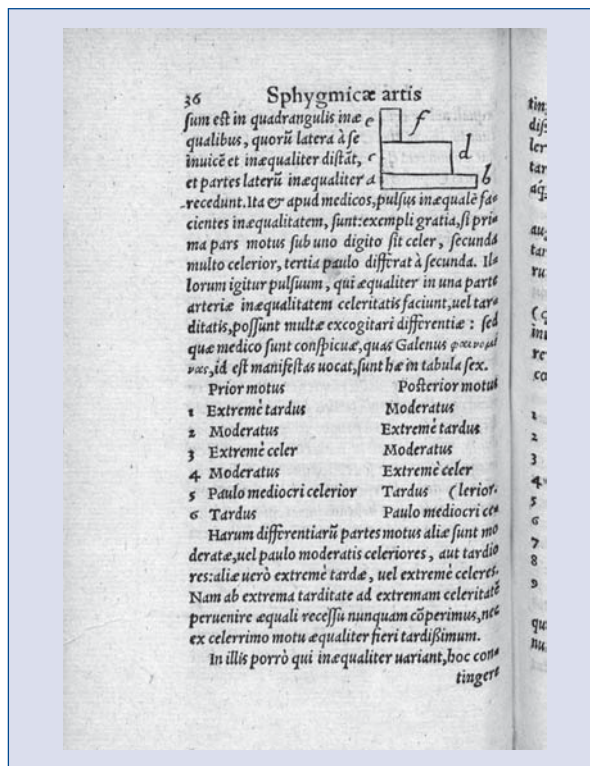 36 Sphygmicæ artis
ſum eſt in quadrangulis inæ e f
qualibus, quorũ latera à ſe
inuicẽ et inæqualiter diſtãt, c d
et partes laterũ inæqualiter a b
recedunt. Ita & apud medicos, pulſus inæqualẽ fa-
cientes inæqualitatem, ſunt: exempli gratia, ſi pri-
ma pars motus ſub uno digito ſit celer, ſecunda
multo celerior, tertia paulo differat à ſecunda. Il-
lorum igitur pulſuum, qui æqualiter in una parte
arteriæ inæqualitatem celeritatis faciunt, uel tar-
ditatis, poſſunt multæ excogitari differentiæ: ſed
quæ medico ſunt conſpicuæ, quas Galenus
id eſt manifeſtas uocat, ſunt hæ in tabula ſex.
Prior motus Poſterior motus
1 Extremè tardus Moderatus
2 Moderatus Extremè tardus
3 Extremè celer Moderatus
4 Moderatus Extremè celer
5 Paulo mediocri celerior Tardus (lerior.
6 Tardus Paulo mediocri ce-
Harum differentiarũ partes motus aliæ ſunt mo
deratæ, uel paulo moderatis celeriores, aut tardio
res: aliæ uerò extremè tardæ, uel extremè celeres.
Nam ab extrema tarditate ad extremam celeritatẽ
peruenire æquali receſſu nunquam cõperimus, nec
ex celerrimo motu æqualiter fieri tardißimum.
In illis porrò qui inæqualiter uariant, hoc con-
tingere
1
2
3
4
5
6
7
8
9